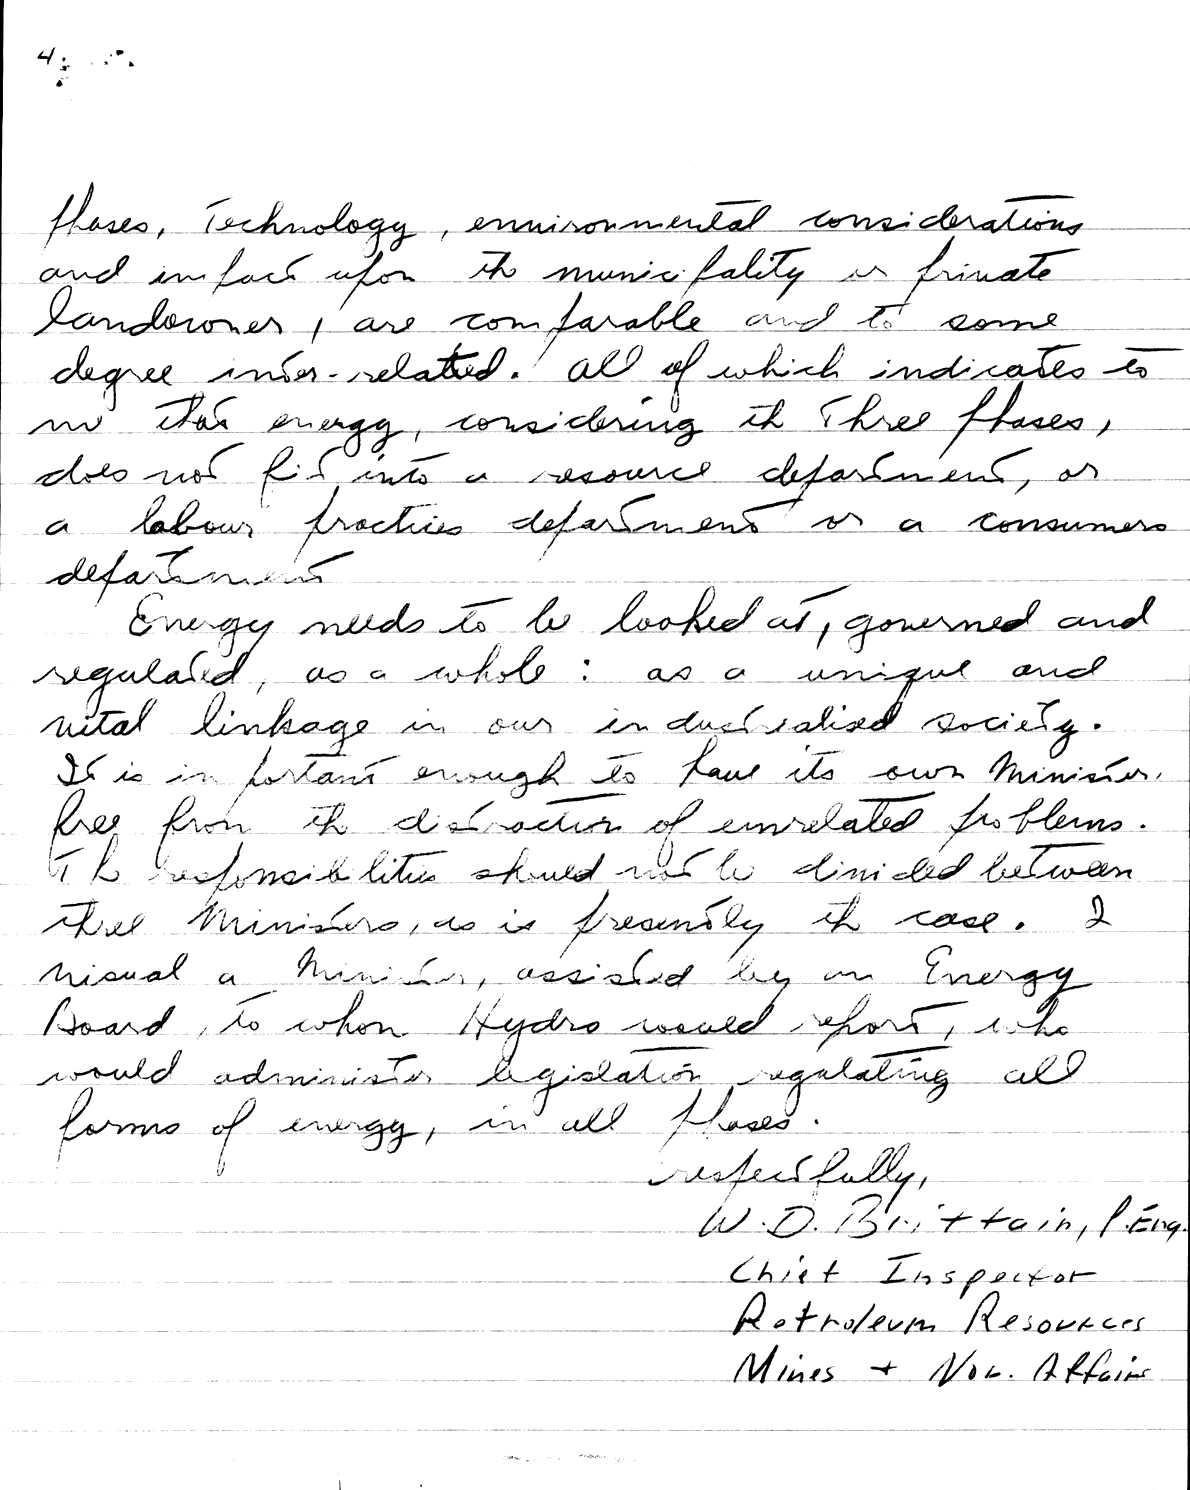 4.
phases, Technology, environmental considerations
and impact upon the municipality or private
landowner, are comparable and to some
degree inter-related. All of which indicates to
me that energy, considering the three phases,
does not fit into a resource department, or
a labour practices department or a consumers
department
Energy needs to be looked at, governed and
regulated, as a whole: as a unique and
vital linkage in our industrialised society.
It is important enough to have its own Minister,
free from the distraction of unrelated problems.
The responsibilities should not be divided between
three Ministers, as is presently the case. I
visual a Minister, assisted by an Energy
Board, to whom Hydro would report, who
would administer legislation regulating all
forms of energy, in all phases.
respectfully,
W. D. Brittain, P. Eng.
Chief Inspector
Petroleum Resources
Mines + Nor. Affairs